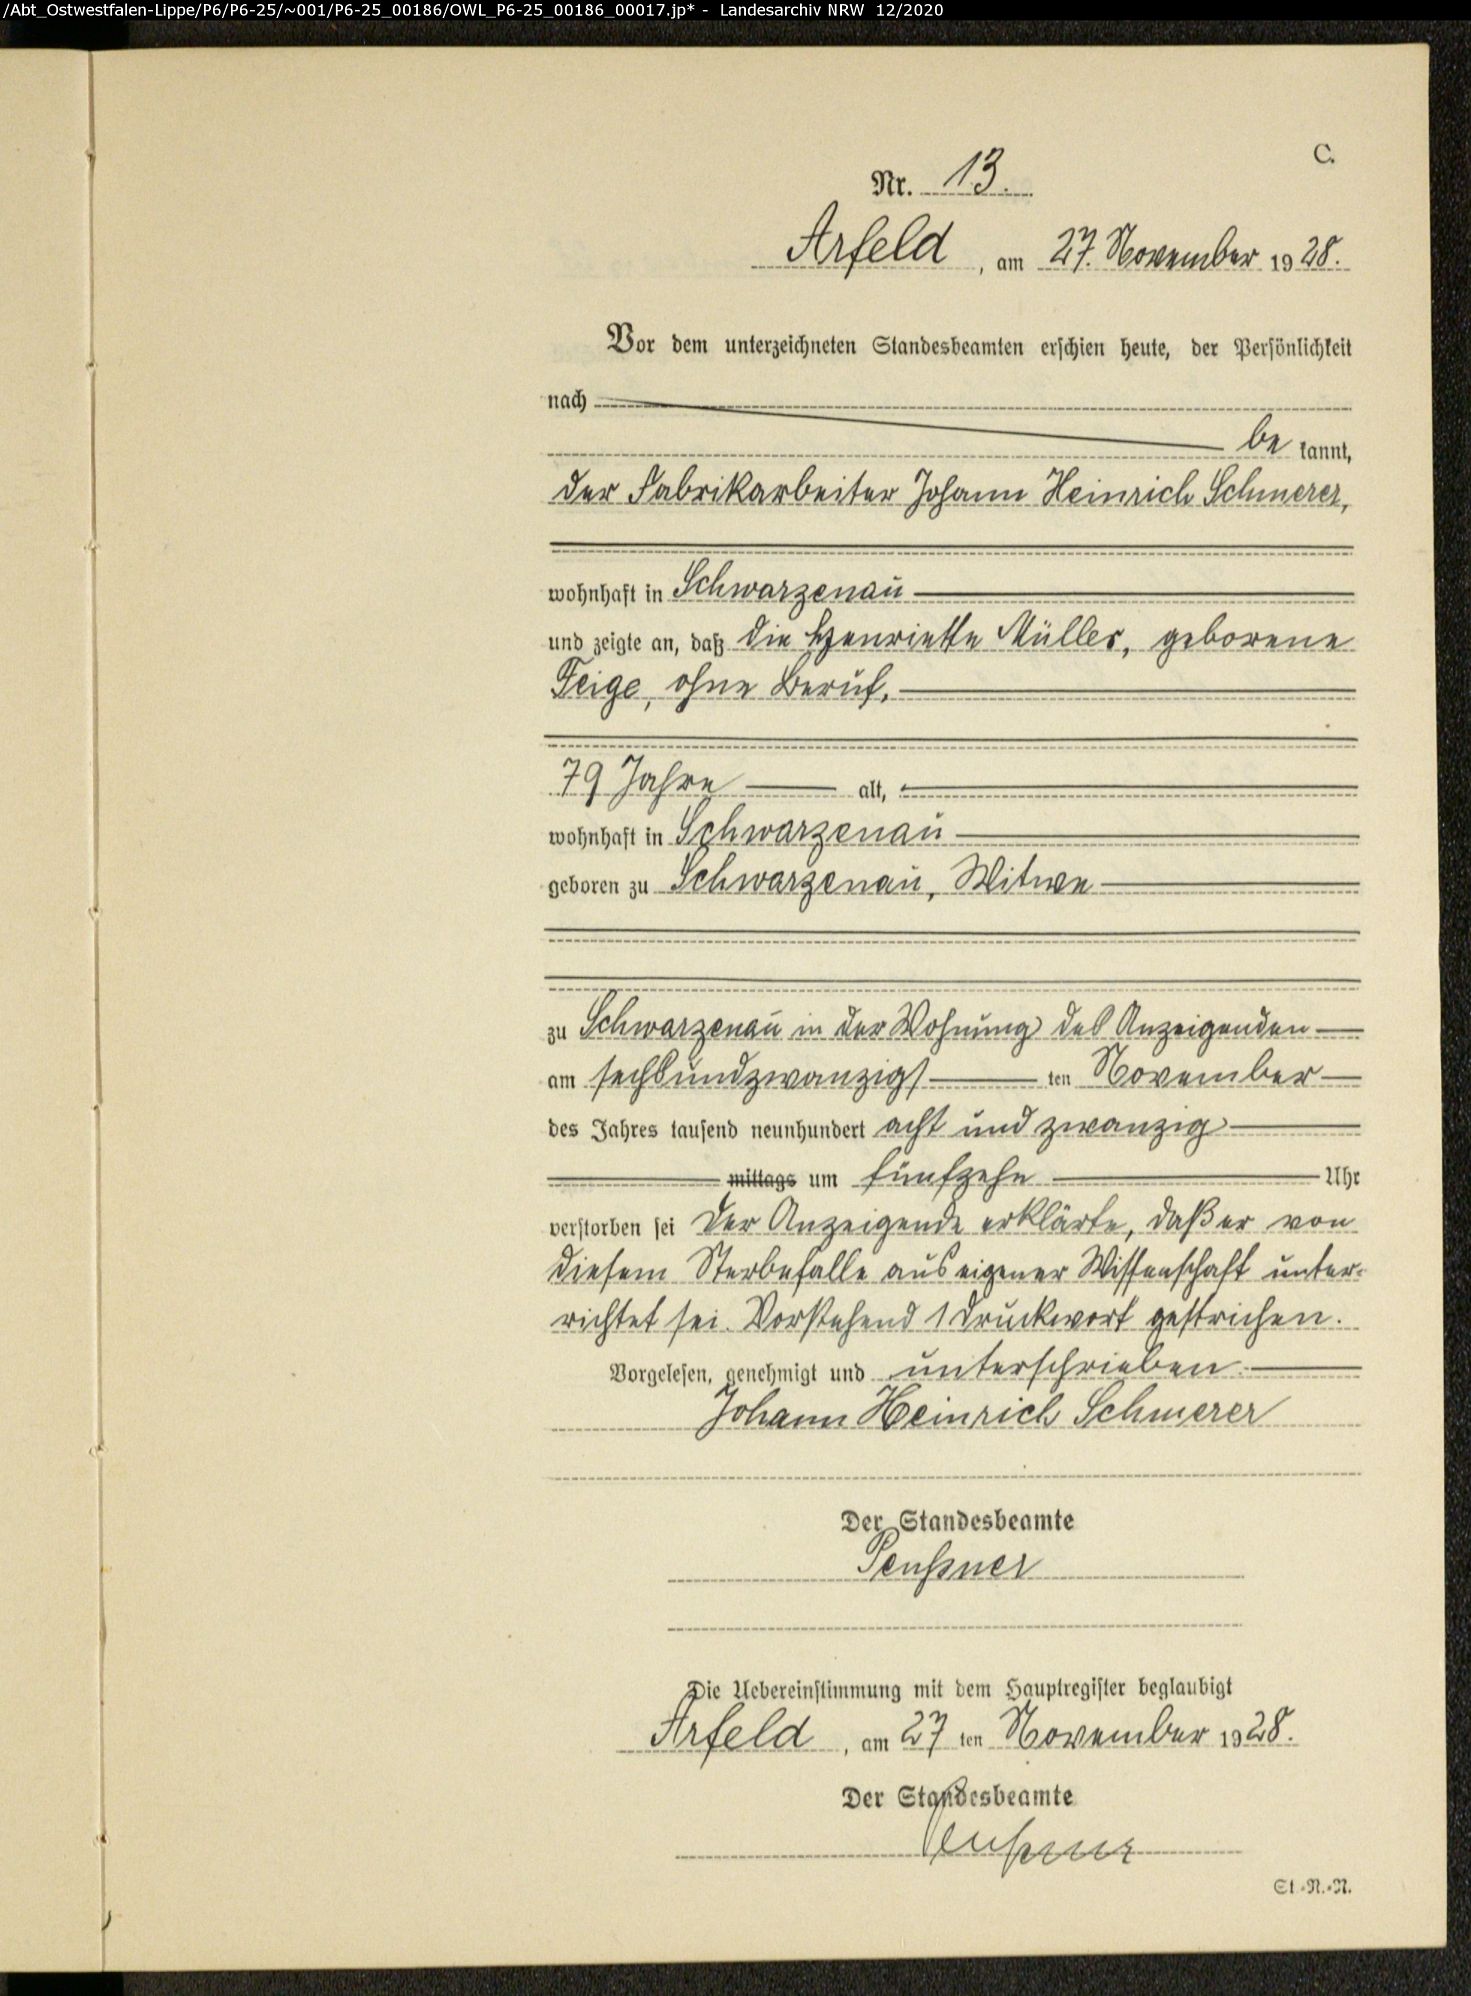 /Abt_Ostwestfalen-Lippe/P6/P6-25/~001/P6-25_00186/OWL_P6-25_00186_00017.jp* - Landesarchiv NRW 12/2020
C.
Nr. 13.
Arfeld, am 27. November 1928.
Vor dem unterzeichneten Standesbeamten erschien heute, der Persönlichkeit
nach
be kannt,
der Fabrikarbeiter Johann Heinrich Schmerer,
wohnhaft in Schwarzenau
und zeigte an, daß die Henriette Müller, geborene
Feige, ohne Beruf,
79 Jahre alt,
wohnhaft in Schwarzenau
geboren zu Schwarzenau, Witwe
zu Schwarzenau in der Wohnung des Anzeigenden
am sechsundzwanzigs ten November
des Jahres tausend neunhundert acht und zwanzig
mittags um fünfzehn Uhr
verstorben sei Der Anzeigende erklärte, daß er von
diesem Sterbefalle aus eigener Wissenschaft unter-
richtet sei. Vorstehend 1 Druckwort gestrichen.
Vorgelesen, genehmigt und unterschrieben.
Johann Heinrich Schmerer
Der Standesbeamte
Die Uebereinstimmung mit dem Hauptregister beglaubigt
Arfeld, am 27 ten November 1928.
Der Standesbeamte
St.-R.-N.